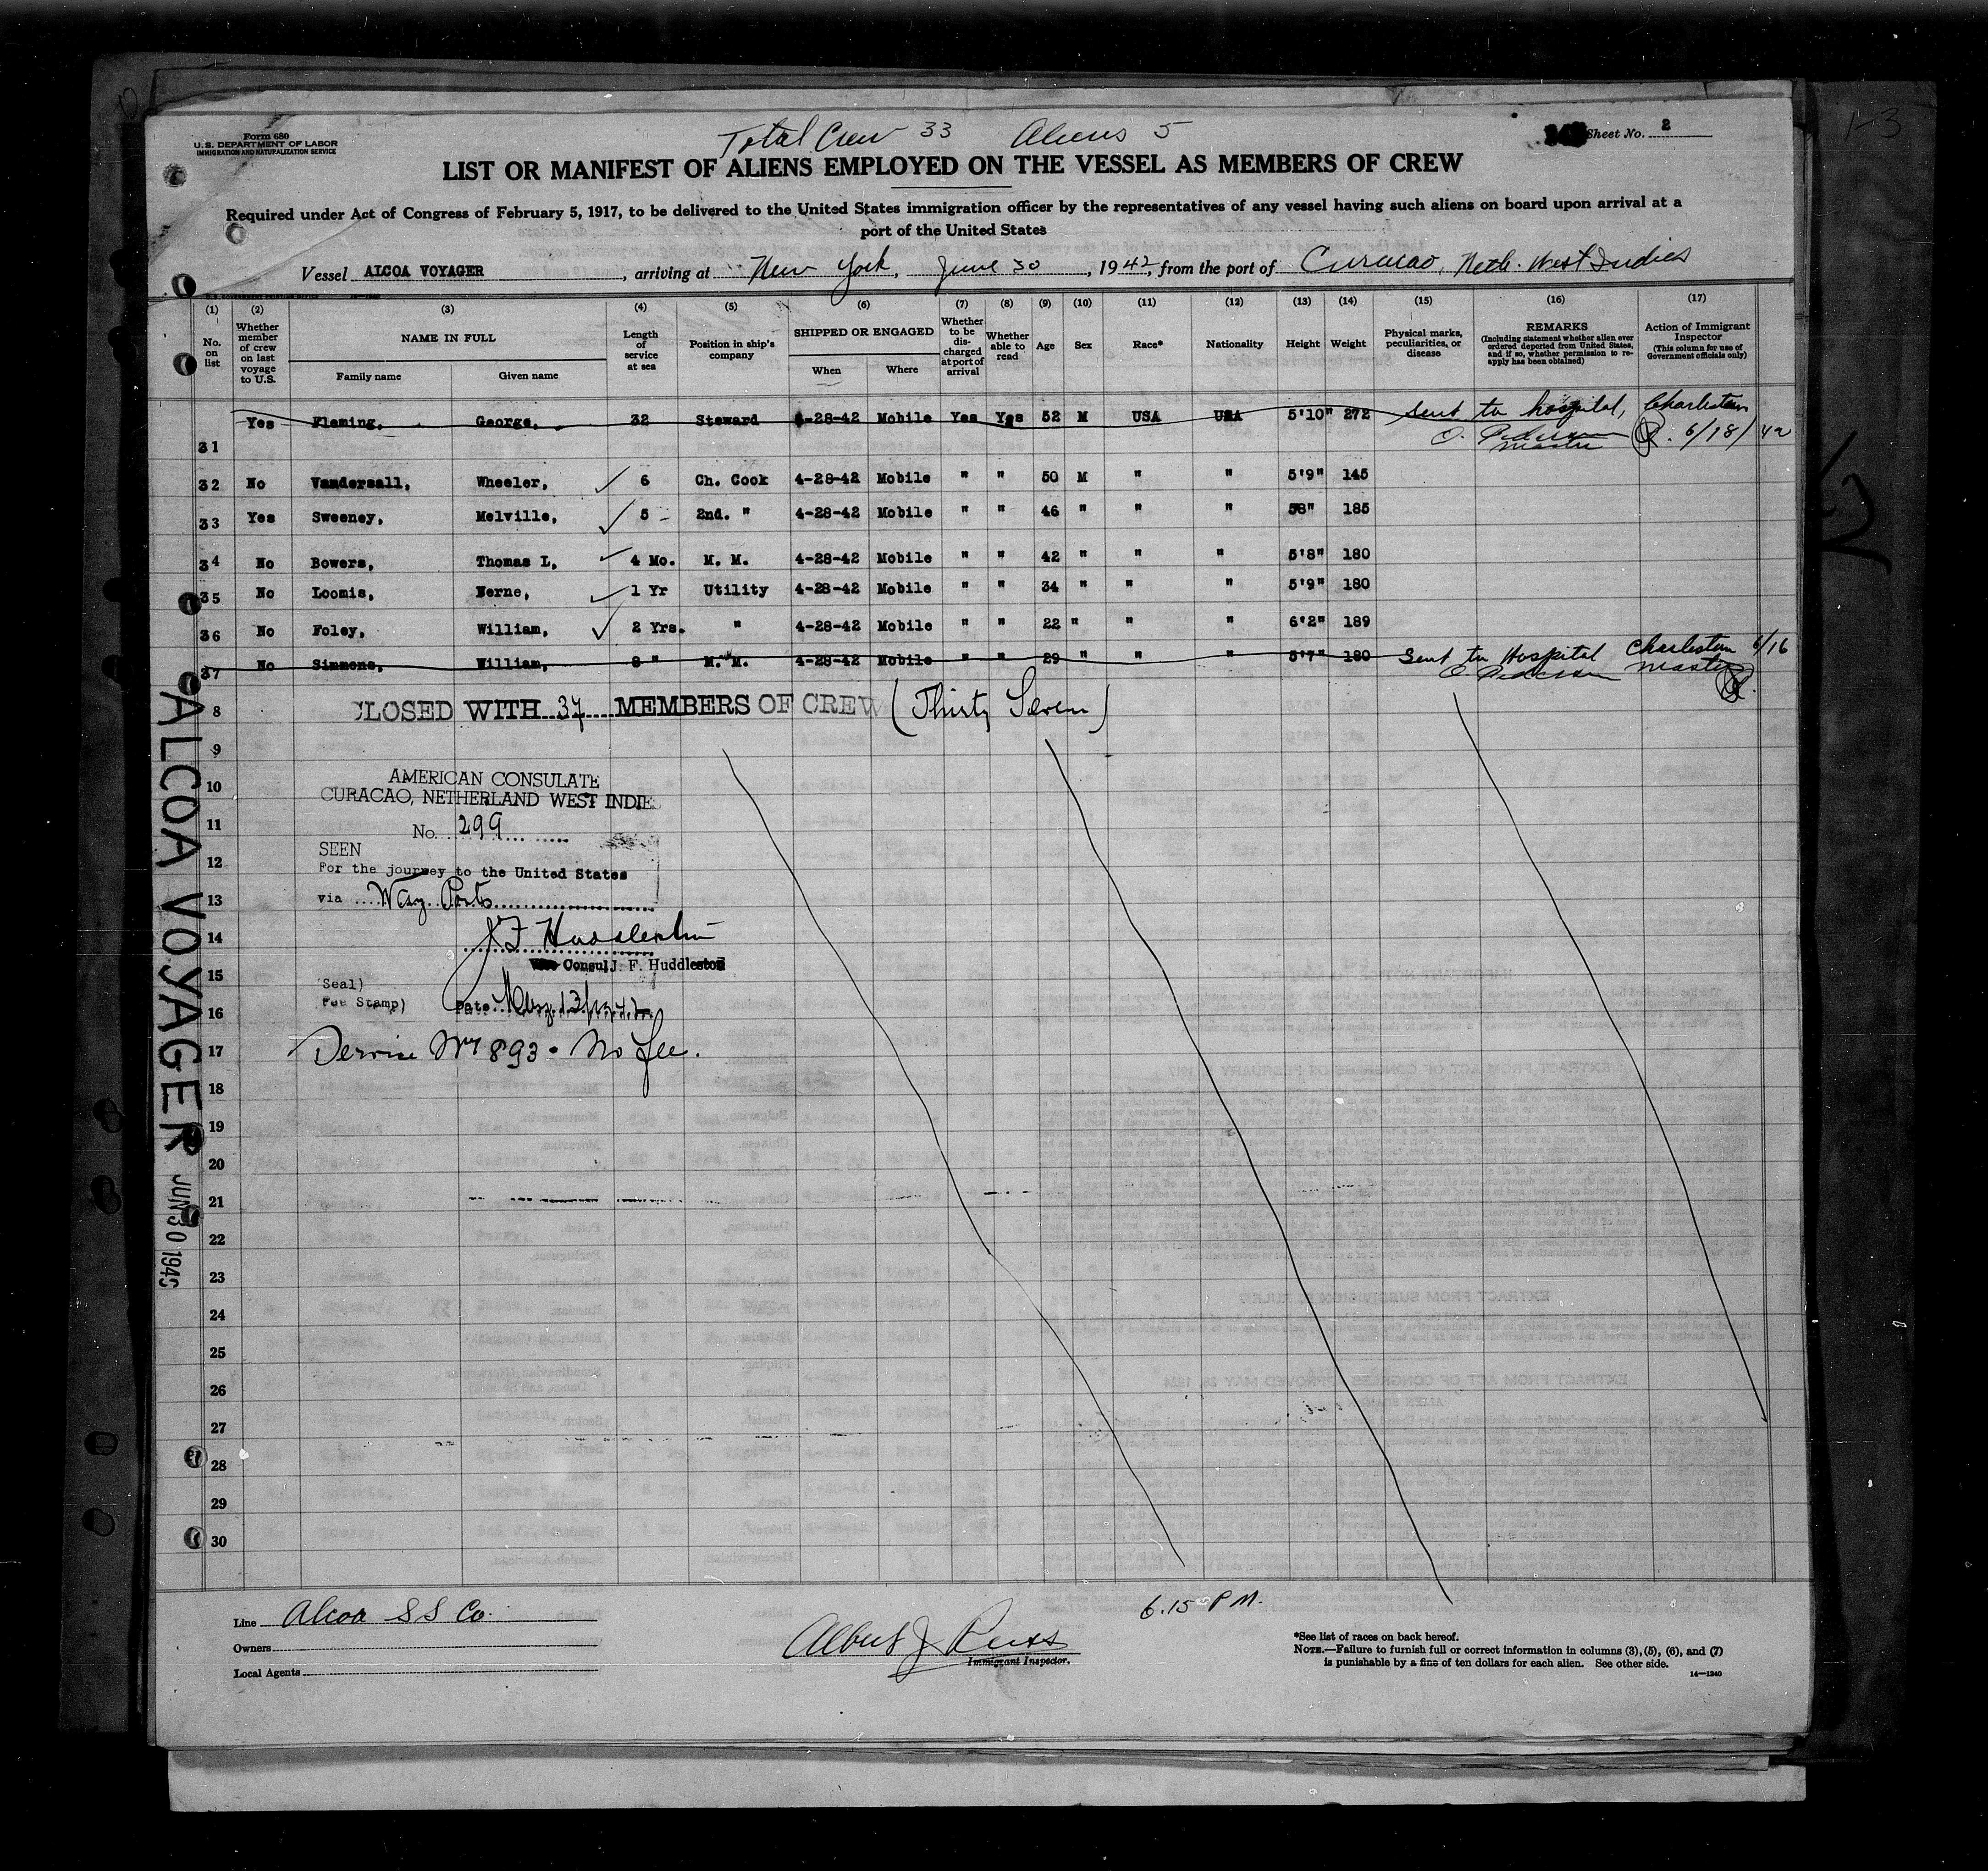 Total Crew 33 Aliens 5
Form 680
U.S. DEPARTMENT OF LABOR
IMMIGRATION AND NATURALIZATION SERVICE
Sheet No. 2
LIST OR MANIFEST OF ALIENS EMPLOYED ON THE VESSEL AS MEMBERS OF CREW
Required under Act of Congress of February 5, 1917, to be delivered to the United States immigration officer by the representatives of any vessel having such aliens on board upon arrival at a
port of the United States
Vessel ALCOA VOYAGER, arriving at New York, June 30, 1942, from the port of Curacao, Neth. West Indies
(1) (2) (3) (4) (5) (6) (7) (8) (9) (10) (11) (12) (13) (14) (15) (16) (17)
No. on list
Whether member of crew on last voyage to U.S.
NAME IN FULL
Family name
Given name
Length of service at sea
Position in ship's company
SHIPPED OR ENGAGED
When
Where
Whether to be discharged at port of arrival
Whether able to read
Age
Sex
Race*
Nationality
Height
Weight
Physical marks, peculiarities, or disease
REMARKS
(Including statement whether alien ever ordered deported from United States, and if so, whether permission to reapply has been obtained)
Action of Immigrant Inspector
(This column for use of Government officials only)
31 Yes Fleming, George, 32 Steward 4-28-42 Mobile Yes Yes 52 M USA USA 5'10" 272 Sent to hospital, Charleston
O. Pedersen Master 6/18/42
32 No Vandersall, Wheeler, 6 Ch. Cook 4-28-42 Mobile " " 50 M " " 5'9" 145
33 Yes Sweeney, Melville, 5 2nd. " 4-28-42 Mobile " " 46 " " " 58" 185
34 No Bowers, Thomas L, 4 Mo. M. M. 4-28-42 Mobile " " 42 " " " 5'8" 180
35 No Loomis, Nerne, 1 Yr Utility 4-28-42 Mobile " " 34 " " " 5'9" 180
36 No Foley, William, 2 Yrs. " 4-28-42 Mobile " " 22 " " " 6'2" 189
37 No Simmons, William, 8 " M. M. 4-28-42 Mobile " " 29 " " " 5'7" 180 Sent to Hospital Charleston 6/16
O. Pedersen Master
8 CLOSED WITH 37 MEMBERS OF CREW (Thirty Seven)
9
10
11
12
13
14
15
16
17
18
19
20
21
22
23
24
25
26
27
28
29
30
AMERICAN CONSULATE
CURACAO, NETHERLAND WEST INDIE
No. 299
SEEN
For the journey to the United States
via Way Ports
J F Huddleston
Vice Consul J. F. Huddleston
Seal)
Fee Stamp)
Date May 13, 1942
Service No 893 - No fee.
ALCOA VOYAGER JUN 30 194
Line Alcoa S S Co.
Owners
Local Agents
Albert J Reiss
Immigrant Inspector.
6.15 P M.
*See list of races on back hereof.
NOTE.—Failure to furnish full or correct information in columns (3), (5), (6), and (7)
is punishable by a fine of ten dollars for each alien. See other side.
14—1240
1-3